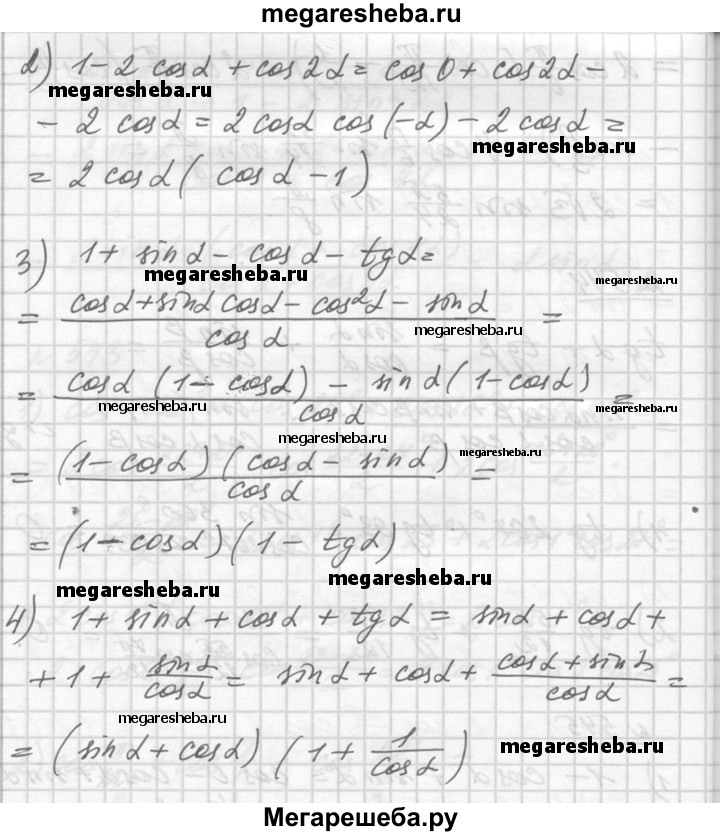 megaresheba.ru
2) 1 - 2 cos α + cos 2α = cos 0 + cos 2α -
megaresheba.ru
- 2 cos α = 2 cos α cos (-α) - 2 cos α =
megaresheba.ru
= 2 cos α ( cos α - 1 )
3) 1 + sin α - cos α - tg α =
megaresheba.ru
megaresheba.ru
= (cos α + sin α cos α - cos²α - sin α) / cos α =
megaresheba.ru
= (cos α (1 - cos α) - sin α (1 - cos α)) / cos α =
megaresheba.ru
megaresheba.ru
megaresheba.ru
= ((1 - cos α) (cos α - sin α)) / cos α =
megaresheba.ru
= (1 - cos α) (1 - tg α)
megaresheba.ru
megaresheba.ru
4) 1 + sin α + cos α + tg α = sin α + cos α +
+ 1 + sin α / cos α = sin α + cos α + (cos α + sin α) / cos α =
megaresheba.ru
= (sin α + cos α) (1 + 1 / cos α)
megaresheba.ru
Мегарешеба.ру